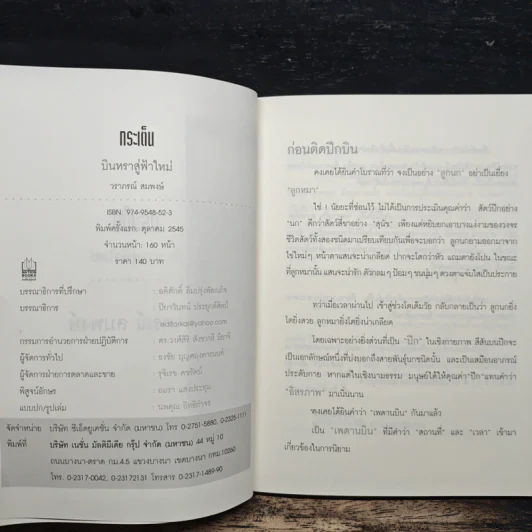 กระเด็น
บินหราสู่ฟ้าใหม่
วราภรณ์ สมพงษ์
ISBN: 974-9548-52-3
พิมพ์ครั้งแรก: ตุลาคม 2545
จำนวนหน้า: 160 หน้า
ราคา 140 บาท
บรรณาธิการที่ปรึกษา : อดิศักดิ์ ลิมปรุ่งพัฒนกิจ
บรรณาธิการ :
กรรมการอำนวยการฝ่ายปฏิบัติการ :
ผู้จัดการทั่วไป :
ผู้จัดการฝ่ายการตลาดและขาย :
พิสูจน์อักษร :
แบบปก/รูปเล่ม :
จัดจำหน่าย บริษัท ซีเอ็ดยูเคชั่น จำกัด (มหาชน) โทร 0-2751-5880, 0-2325-1111
พิมพ์ที่ บริษัท เนชั่น มัลติมีเดีย กรุ๊ป จำกัด (มหาชน) 44 หมู่ 10
ถนนบางนา-ตราด กม.4.5 แขวงบางนา เขตบางนา กทม.10260
โทร. 0-2317-0042, 0-23172131 โทรสาร 0-2317-1489-90
ก่อนติดปีกบิน
คงเคยได้ยินคำโบราณที่ว่า จงเป็นอย่าง "ลูกนก" อย่าเป็นเยี่ยง
"ลูกหมา"
ใช่ ! นัยยะที่ซ่อนไว้ ไม่ได้เป็นการประเมินคุณค่าว่า สัตว์ปีกอย่าง
"นก" ดีกว่าสัตว์สี่ขาอย่าง "สุนัข" เพียงแค่หยิบยกเอาบางแง่งามของวงจร
ชีวิตสัตว์ทั้งสองชนิดมาเปรียบเทียบกันเพื่อจะบอกว่า ลูกนกยามออกมาจาก
ไข่ใหม่ๆ หน้าตาแสนจะน่าเกลียด ปากจะโตกว่าหัว แถมตายังโปน ในขณะ
ที่ลูกหมานั้น แสนจะน่ารัก ตัวกลมๆ ป้อมๆ ขนนุ่มๆ ดวงตาแจ่มใสเป็นประกาย
ทว่าเมื่อเวลาผ่านไป เข้าสู่ช่วงโตเต็มวัย กลับกลายเป็นว่า ลูกนกยิ่ง
โตยิ่งสวย ลูกหมายิ่งโตยิ่งน่าเกลียด
โดยเฉพาะอย่างยิ่งส่วนที่เป็น "ปีก" ในเชิงกายภาพ สีสันบนปีกจะ
เป็นเอกลักษณ์หนึ่งที่บ่งบอกถึงสายพันธุ์นกชนิดนั้น และเป็นเสมือนอาภรณ์
ประดับกาย หากแต่ในเชิงนามธรรม มนุษย์ได้ให้คุณค่า"ปีก"แทนคำว่า
"อิสรภาพ" มาเนิ่นนาน
คงเคยได้ยินคำว่า "เพดานบิน" กันมาแล้ว
เป็น "เพดานบิน" ที่มีคำว่า "สถานที่" และ "เวลา" เข้ามา
เกี่ยวข้องในการนิยาม